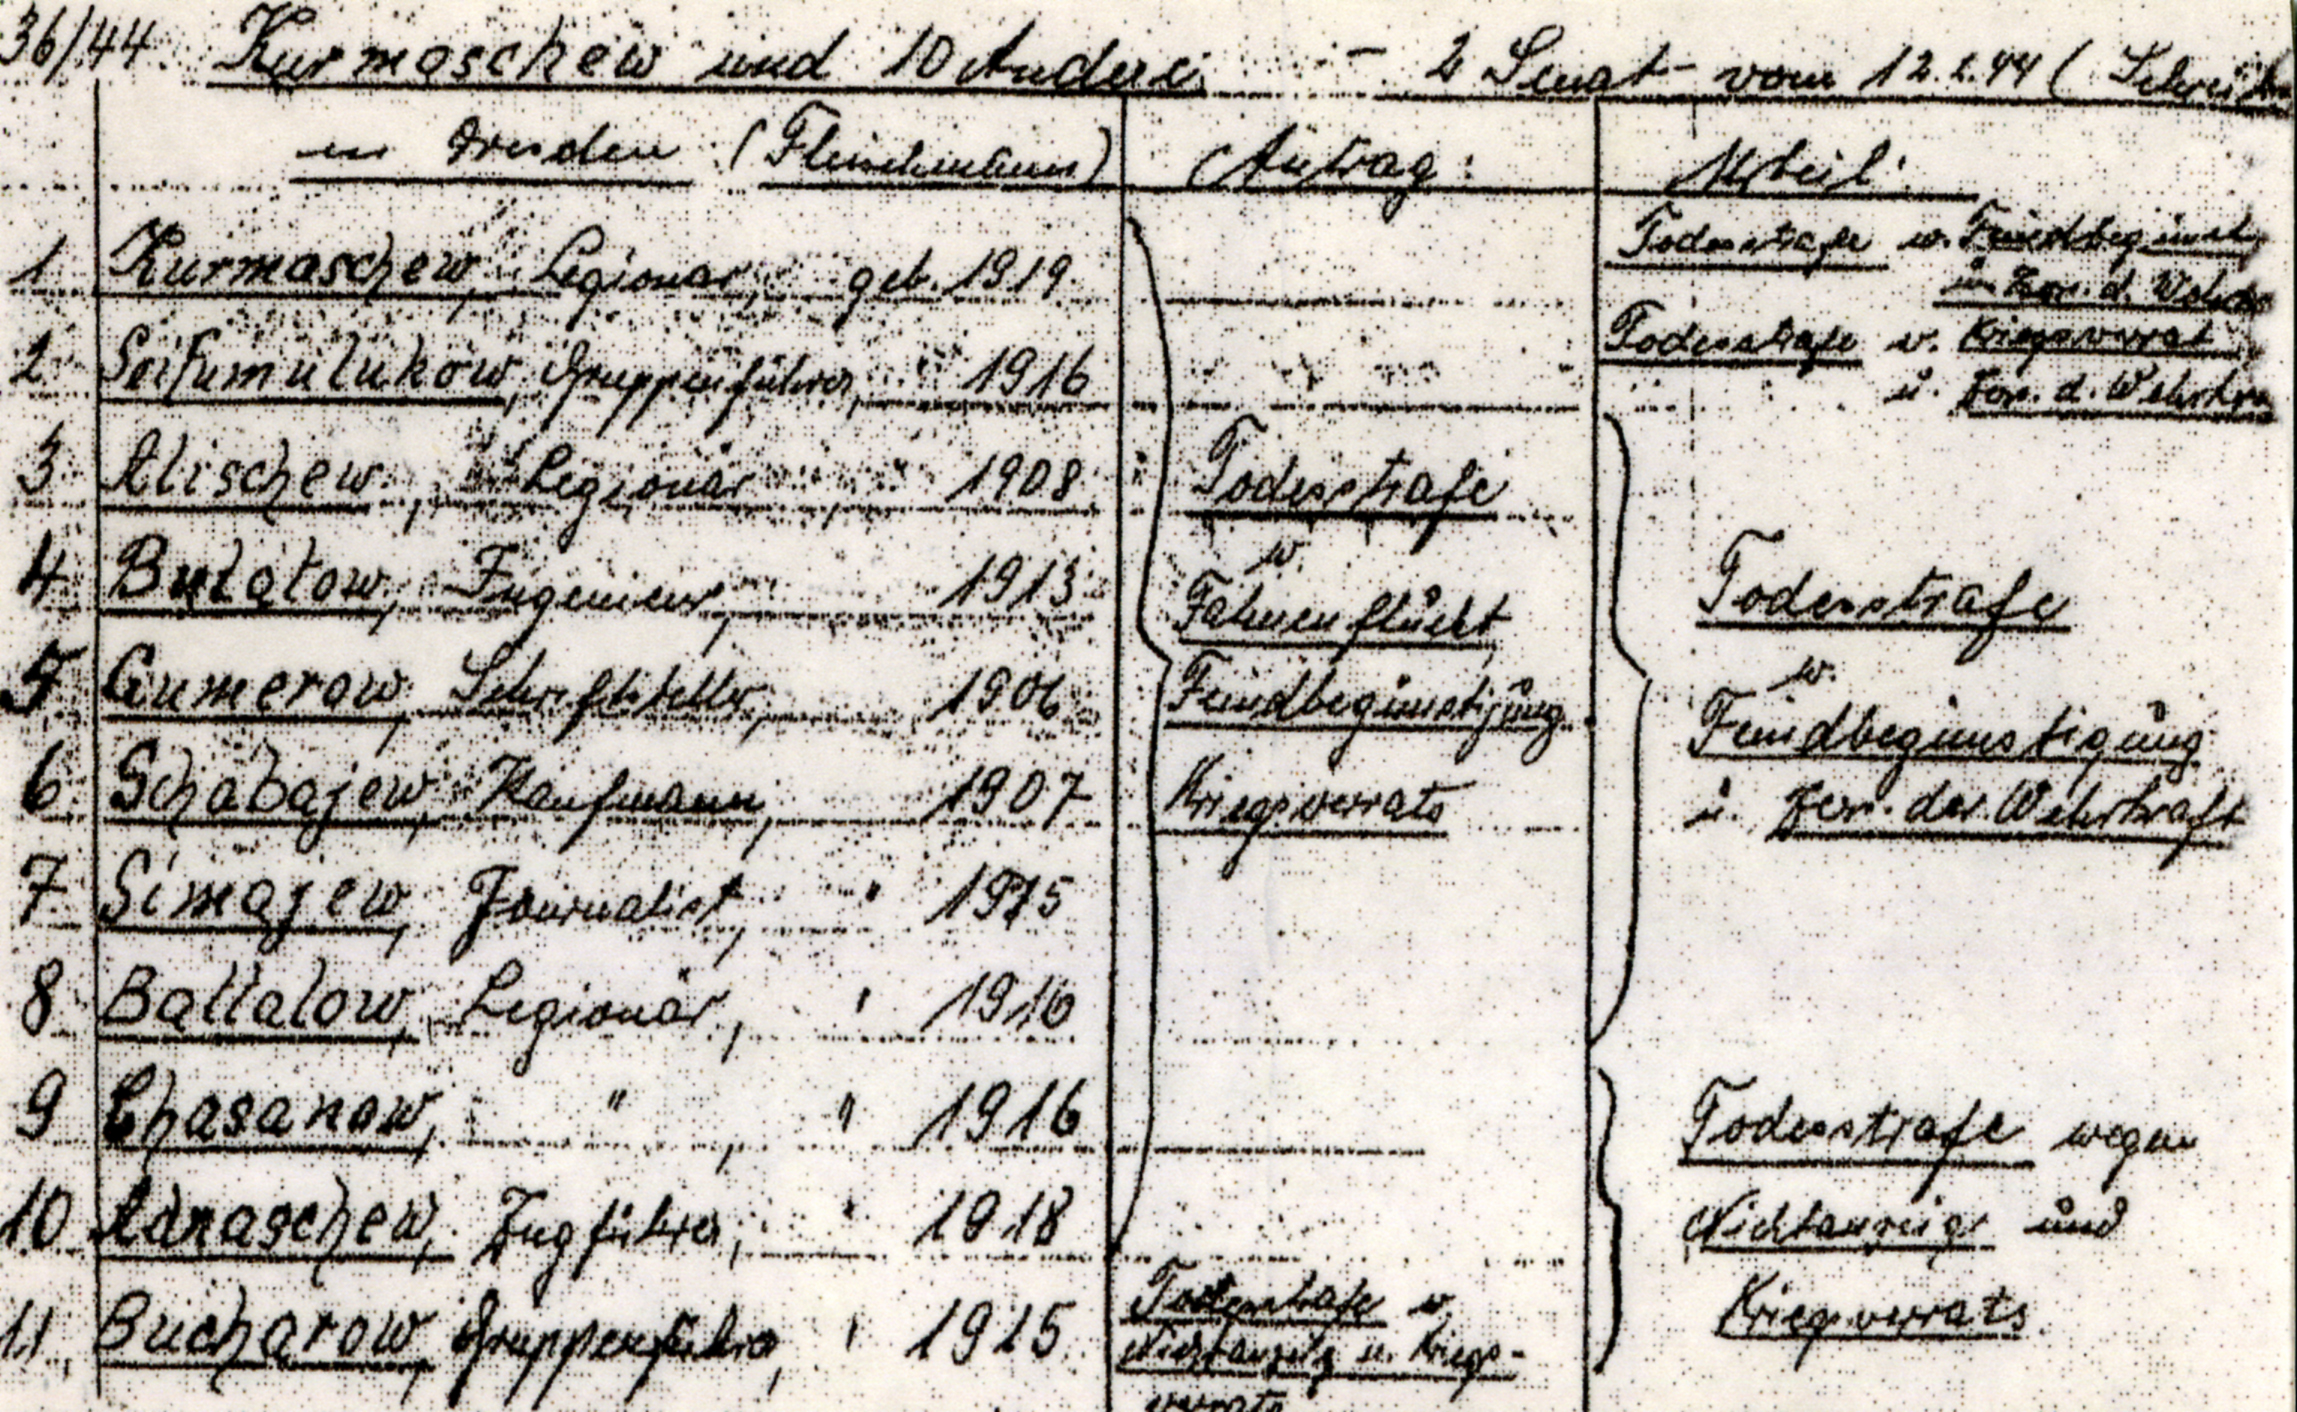 36/44. Kurmaschew und 10 Andere - 2 Senat - vom 12.2.44 (
in Dresden (Fleischmann) Antrag: Urteil:
1. Kurmaschew, Legionär, geb. 1919. Todesstrafe w. Feindbegünst.
u. Zer. d. Wehrkr
2. Seifumulukow, Gruppenführer, " 1916 Todesstrafe w. Kriegsverrat
u. Zer. d. Wehrkra
3. Alischew, Legionär " 1908 Todesstrafe
w.
4. Bulatow, Ingenieur, 1913 Fahnenflucht Todesstrafe
w.
5. Gumerow, Schriftsteller, 1906 Feindbegünstigung Feindbegünstigung
6. Schabajew, Kaufmann, 1907 Kriegsverrats u. Zer. der Wehrkraft
7. Simajew, Journalist, " 1915
8. Battalow, Legionär, " 1916
9 Chasanow, " " 1916 Todesstrafe wegen
10. Adnaschew, Zugführer, " 1918 Nichtanzeige und
11. Bucharow, Gruppenführer, " 1915 Todesstrafe w. Kriegsverrats.
Nichtanzeige u. Kriegs-
verrats